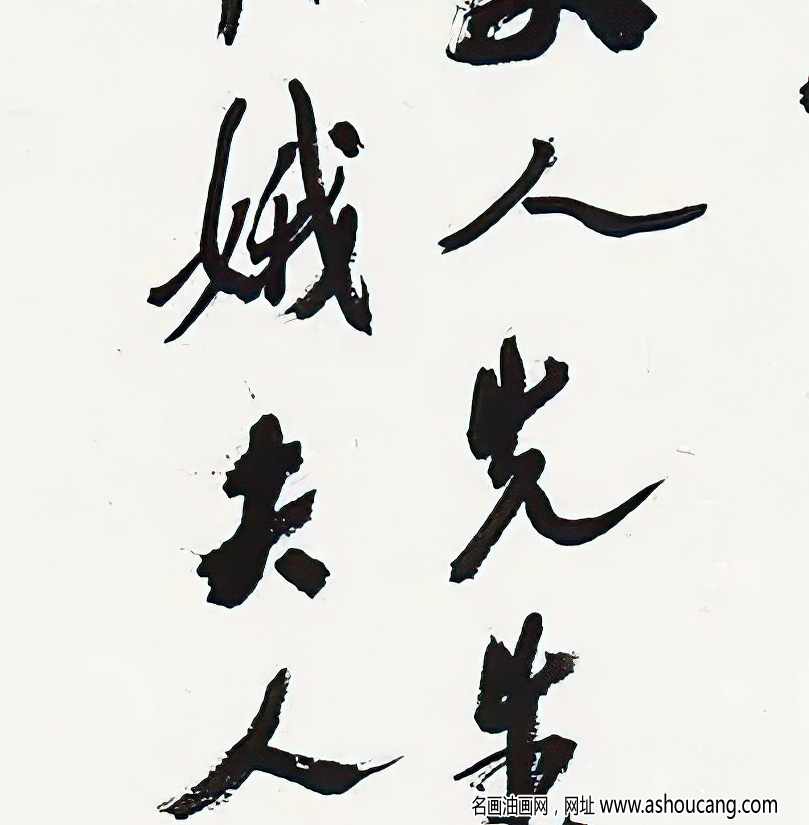 人先生
娥夫人
名画油画网，网址 www.ashoucang.com